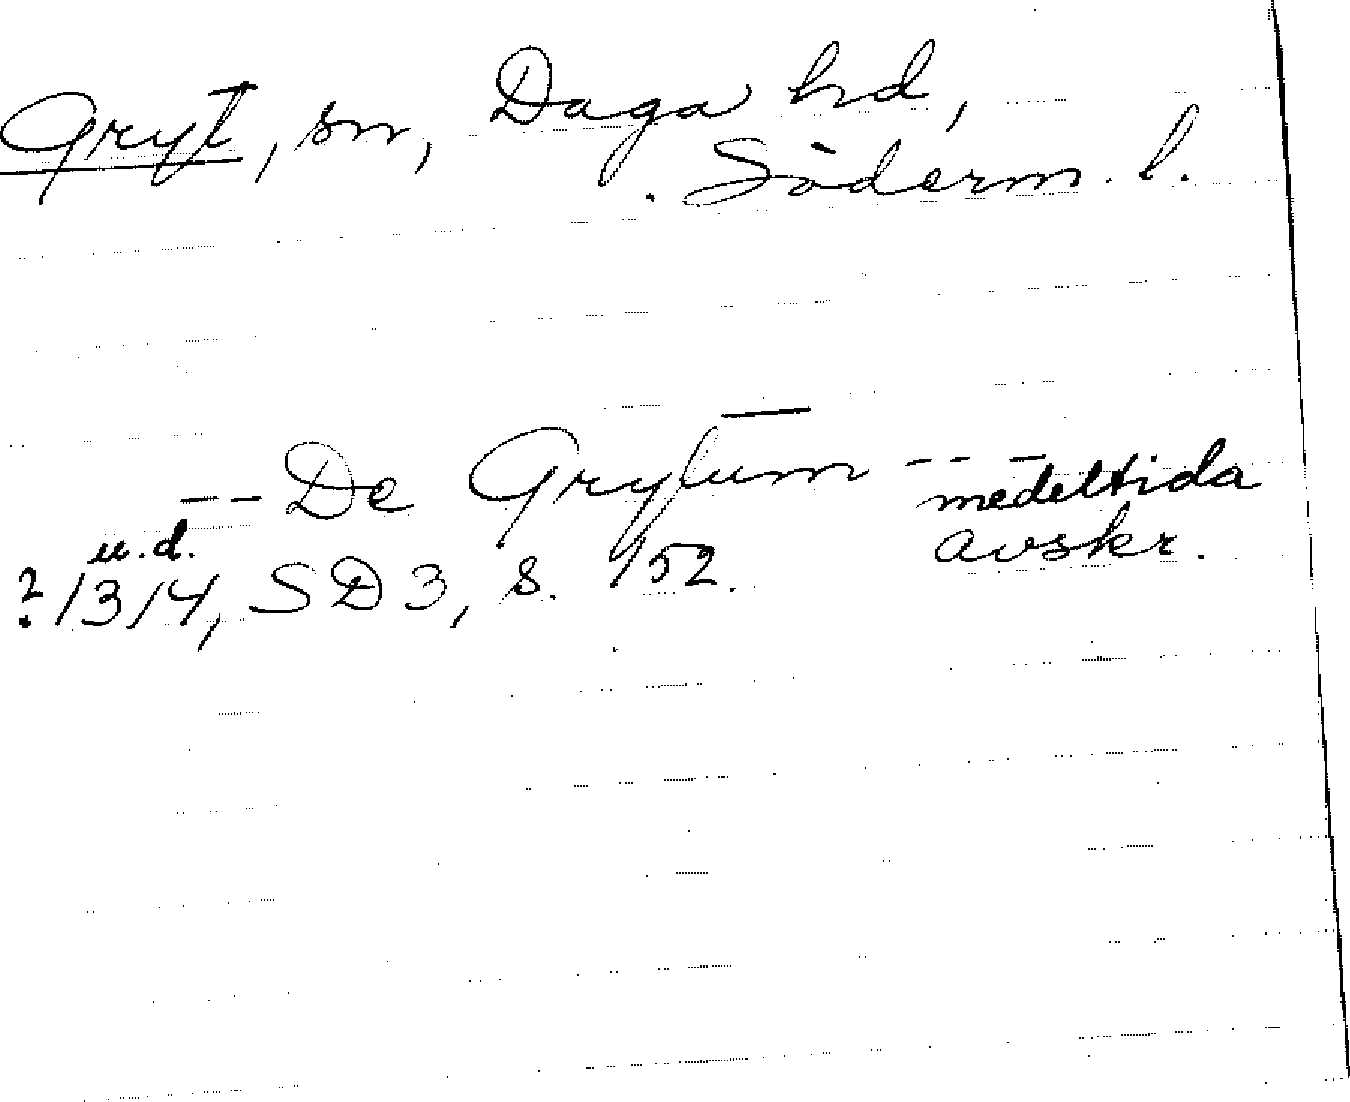 Gryt, sn, Daga hd,
Söderm. l.
-- De Grytum ---
medeltida
avskr.
u.d.
? 1314, SD 3, s. 152.